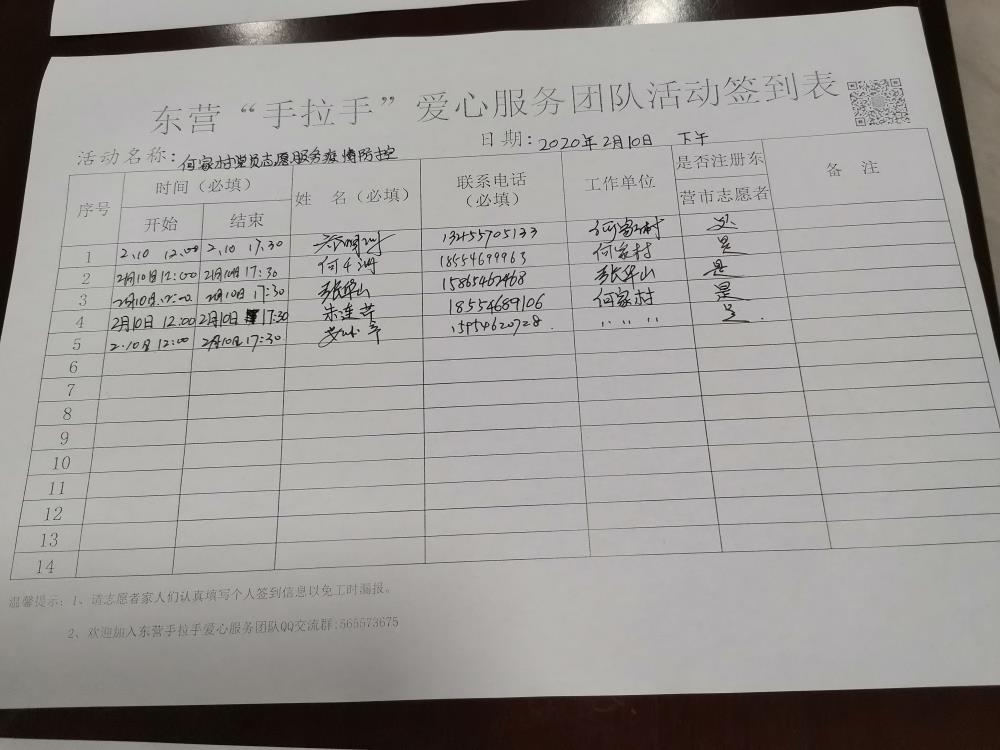 东营“手拉手”爱心服务团队活动签到表
活动名称：何家村党员志愿服务疫情防控 日期：2020年2月10日 下午
序号 时间（必填） 姓 名（必填） 联系电话（必填） 工作单位 是否注册东营市志愿者 备 注
开始 结束
1 2.10 12:00 2.10 17:30 13455705133 何家村 是
2 2月10日12:00 2月10日17:30 18554699963 何家村 是
3 2月10日12:00 2月10日 17:30 张华山 15865462468 张华山 是
4 2月10日 12:00 2月10日 17:30 朱连芳 18554689106 何家村 是
5 2.10日 12:00 2月10日17:30 15954620728 〃 〃 〃 是
6
7
8
9
10
11
12
13
14
温馨提示：1、请志愿者家人们认真填写个人签到信息以免工时漏报。
2、欢迎加入东营手拉手爱心服务团队QQ交流群:565573675